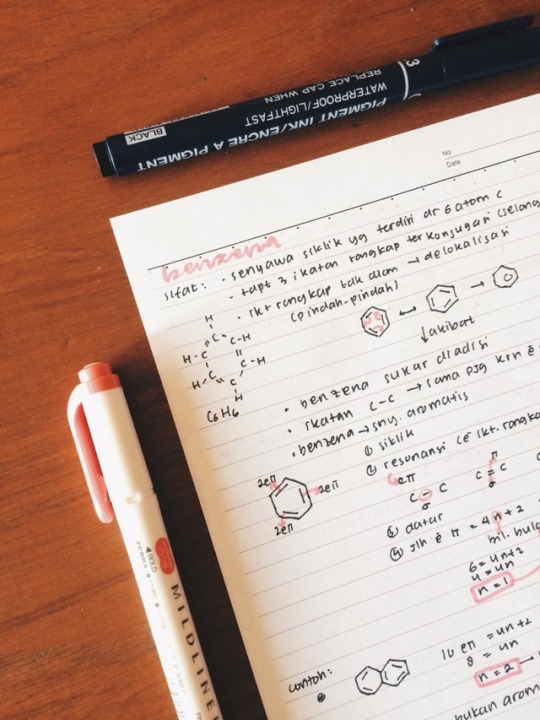 3
REPLACE CAP WHEN
WATERPROOF/LIGHTFAST
PIGMENT INK/ENCRE A PIGMENT
BLACK
No
Date
benzena
sifat: • senyawa siklik yg terdiri dr 6 atom C
- tdpt 3 ikatan rangkap terkonjugasi (selang
• ikt rangkap tdk diam → delokalisasi
(pindah-pindah)
H
C C-H
H-C C-H
H C C
H
C6H6
↔ →
↓akibat
• benzena sukar diadisi
• ikatan C-C → sama pjg krn e
• benzena → sny. aromatis
① siklik
② resonansi (e ikt. rangka
eπ π
C = C C = C
σ σ
③ datar
④ jlh e π = 4n + 2
bil. bula
6 = 4n+2
4 = 4n
n = 1
2eπ
2eπ
2eπ
contoh:
10 eπ = 4n+2
8 = 4n
n = 2 →
bukan arom
4 BOLD
ZEBRA
MILDLINER